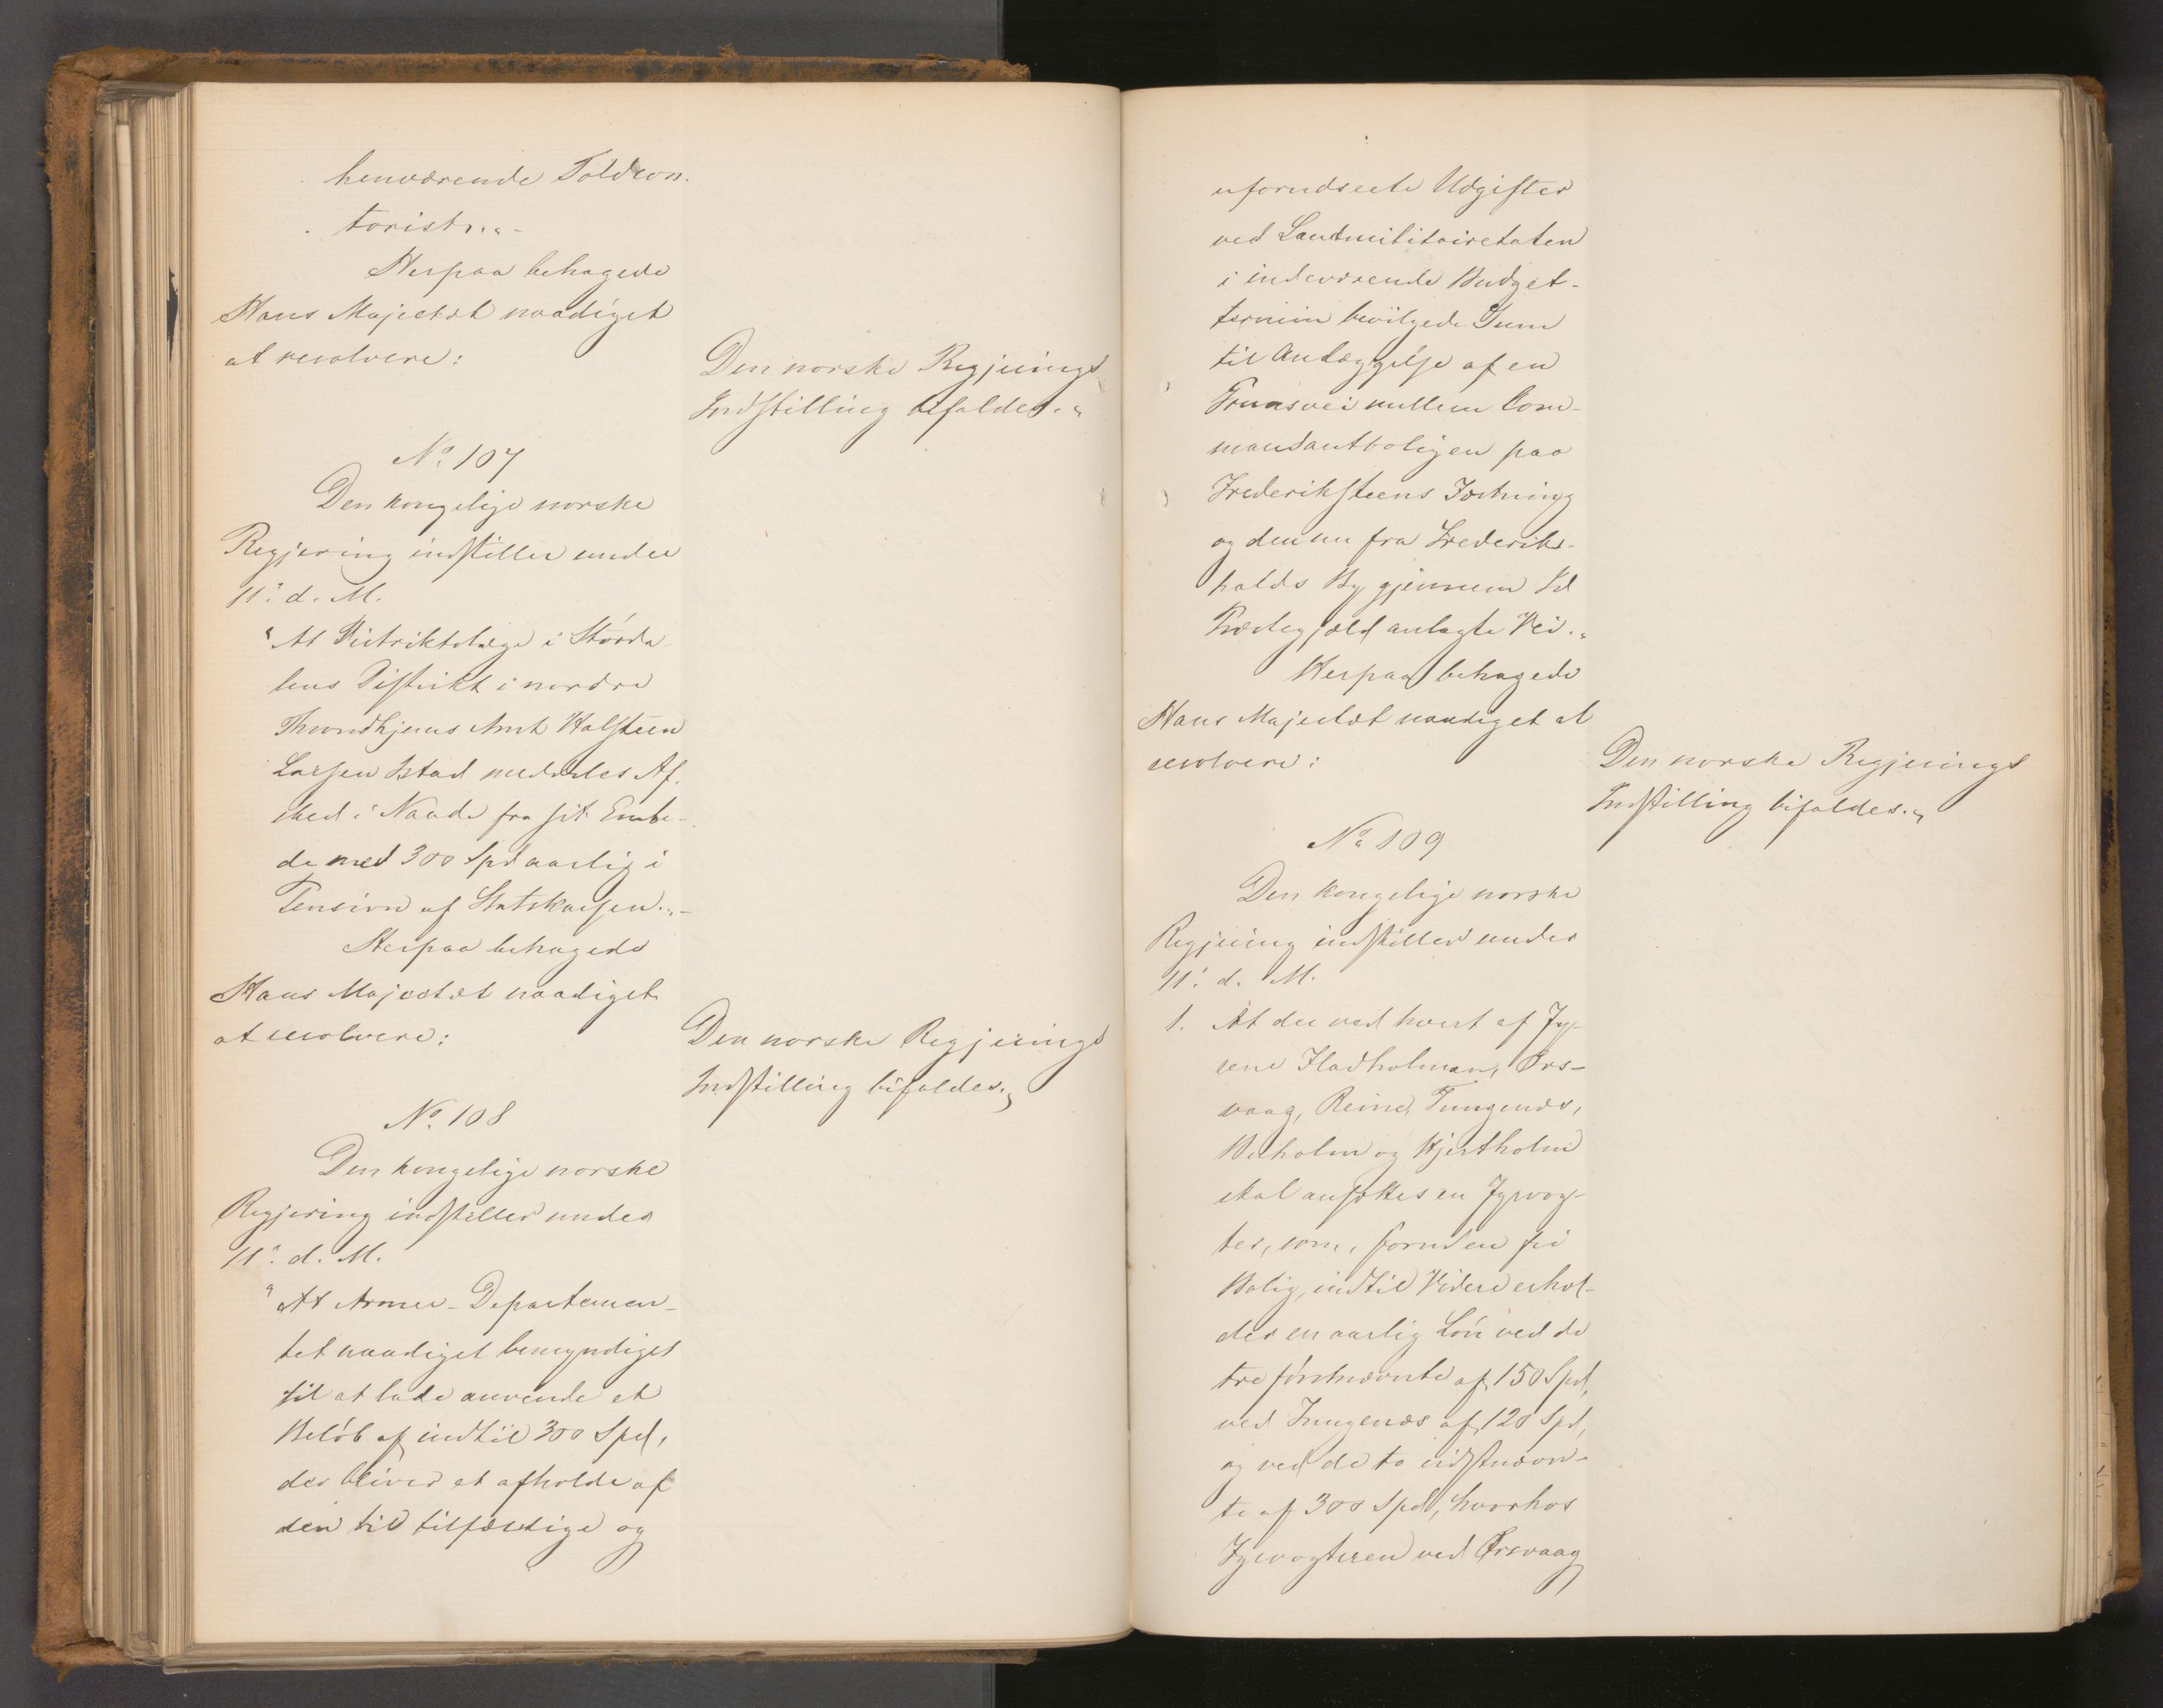 henværende Toldcon-
torister."-
Herpaa behagede
Hans Majestæt naadigst
at resolvere:
Den norske Regjerings
Indstilling bifaldes."
No. 107
Den kongelige norske
Regjering indstiller under
11te d. M.
"At Distriktslæge i Størda-
lens Distrikt i nordre
Throndhjems Amt Halsteen
Larsen Istad meddeles Af-
sked i Naade fra sit Embe-
de med 300 Spd aarlig i
Pension af Statskassen."-
Herpaa behagede
Hans Majestæt naadigst
at resolvere:
Den norske Regjerings
Indstilling bifaldes."
No. 108
Den kongelige norske
Regjering indstiller under
11te d. M.
"At Armee-Departemen-
tet naadigst bemyndiges
til at lade anvende et
Beløb af indtil 300 Spd,
der bliver at afholde af
den til tilfældige og
uforudseete Udgifter
ved Landmilitairetaten
i indeværende Budget-
termin bevilgede Sum
til Anlæggelse af en
vei mellem Com-
mandantboligen paa
Frederiksteens Fæstning
og den nu fra Frederiks-
halds By gjennem Id
Præstegjæld anlagte Vei."
Herpaa behagede
Hans Majestæt naadigst at
resolvere:
Den norske Regjerings
Indstilling bifaldes."
No. 109
Den kongelige norske
Regjering indstiller under
11te d. M.
1. At der ved hvert af Fy-
rene Fladholman, Ørs-
vaag, Reine, Tungenæs,
og Hjertholm
skal ansættes en Fyrvog-
ter, som, foruden fri
Bolig, indtil Videre erhol-
der en aarlig Løn ved de
tre førstnævnte af 150 Spd,
ved Tungenæs af 120 Spd,
og ved de to sidstnævn-
te af 300 Spd, hvorhos
Fyrvogteren ved Ørsvaag